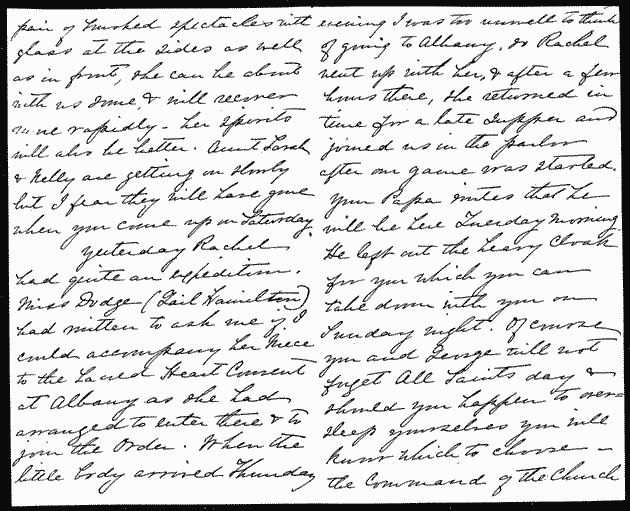 pair of smoked spectacles with
glass at the sides as well
as in front, she can be about
with us some & will recover
more rapidly - her spirits
will also be better. Aunt Sarah
& Nelly are getting on slowly
but I fear they will have gone
when you come up on Saturday.
Yesterday Rachel
had quite an expedition.
Miss Dodge (Gail Hamilton)
had written to ask me if I
could accompany her niece
to the Sacred Heart Convent
at Albany as she had
arranged to enter there & to
join the Order. When the
little body arrived Thursday
evening I was too unwell to think
of going to Albany, so Rachel
went up with her, & after a few
hours there, she returned in
time for a late supper and
joined us in the parlor
after our game was started.
Your Papa writes that he
will be here Tuesday morning.
He left out the heavy cloak
for you which you can
take down with you on
Sunday night. Of course
you and George will not
forget All Saints day &
should you happen to over=
sleep yourselves you will
know which to choose -
the Command of the Church